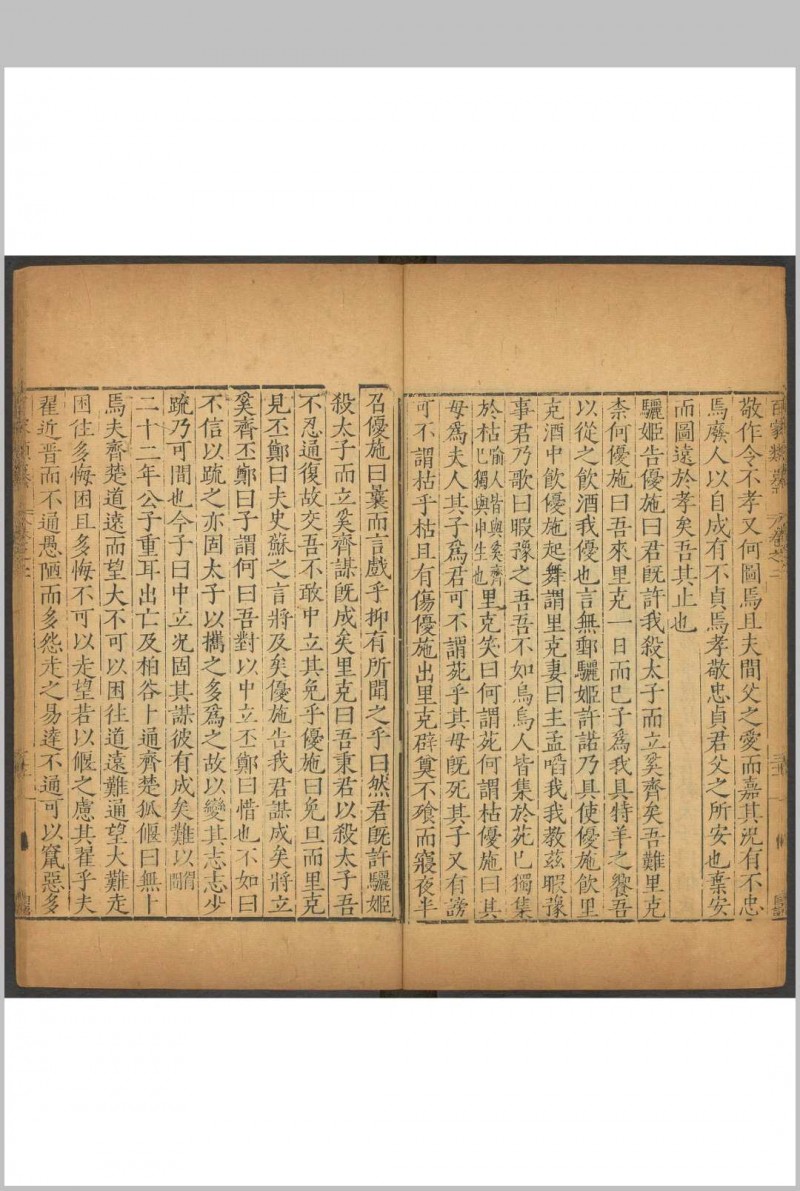 敬作令不孝又何圖焉且夫間父之愛而嘉其況有不忠
焉廢人以自成有不貞焉孝敬忠貞君父之所安也棄安
而圖遠於孝矣吾其止也
驪姬告優施曰君旣許我殺太子而立奚齊矣吾難里克
柰何優施曰吾來里克一日而已子爲我具特羊之饗吾
以從之飲酒我優也言無郵驪姬許諾乃具使優施飲里
克酒中飲優施起舞謂里克妻曰主孟啗我我教茲暇豫
事君乃歌曰暇豫之吾吾不如鳥烏人皆集於苑已獨集
於枯喻人皆與奚齊已獨與申生也里克笑曰何謂苑何謂枯優施曰其
母爲夫人其子爲君可不謂苑乎其母旣死其子又有謗
可不謂枯乎枯且有傷優施出里克辟奠不飱而寢夜半
召優施曰曩而言戲乎抑有所聞之乎曰然君旣許驪姬
殺太子而立奚齊謀旣成矣里克曰吾秉君以殺太子吾
不忍通復故交吾不敢中立其免乎優施曰免旦而里克
見丕鄭曰夫史蘇之言將及矣優施告我君謀成矣將立
奚齊丕鄭曰子謂何曰吾對以中立丕鄭曰惜也不如曰
不信以疏之亦固太子以攜之多爲之故以變其志志少
疏乃可間也今子曰中立况固其謀彼有成矣難以得間
二十二年公子重耳出亡及柏谷卜適齊楚狐偃曰無卜
焉夫齊楚道遠而望大不可以困往道遠難通望大難走
困往多悔困且多悔不可以走望若以偃之慮其翟乎夫
翟近晋而不通愚陋而多怨走之易達不通可以竄惡多